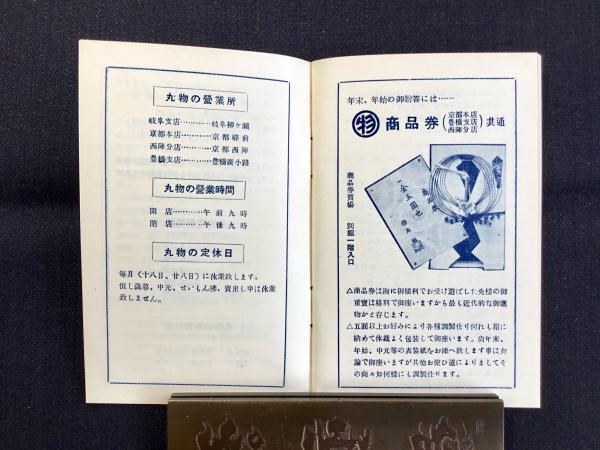 丸物の營業所
岐阜支店…………岐阜柳ケ瀬
京都本店…………京都驛前
西陣分店…………京都西陣
豊橋支店…………豊橋廣小路
丸物の營業時間
開店…………午前九時
閉店…………午後九時
丸物の定休日
毎月（十八日、廿八日）に休業致します。
但し歳暮、中元、せいもん拂、賣出し中は休業
致しません。
年末、年始の御贈答には……
物 商品券（京都本店 豊橋支店 西陣分店）共通
商品券賣場 別館一階入口
一金五圓也
△商品券は洵に御便利でお受け遊ばした先樣の御
重寶は格別で御座いますから最も近代的な御進
物かと存じます。
△五圓以上お好みにより各種調製仕り何れも箱に
納めて体裁よく包装して御座います。尙年末、
年始、中元等の表装紙をお添へ致します事は勿
論で御座いますが其他お使ひ道によりましてそ
の向々如何樣にも調製仕ります。